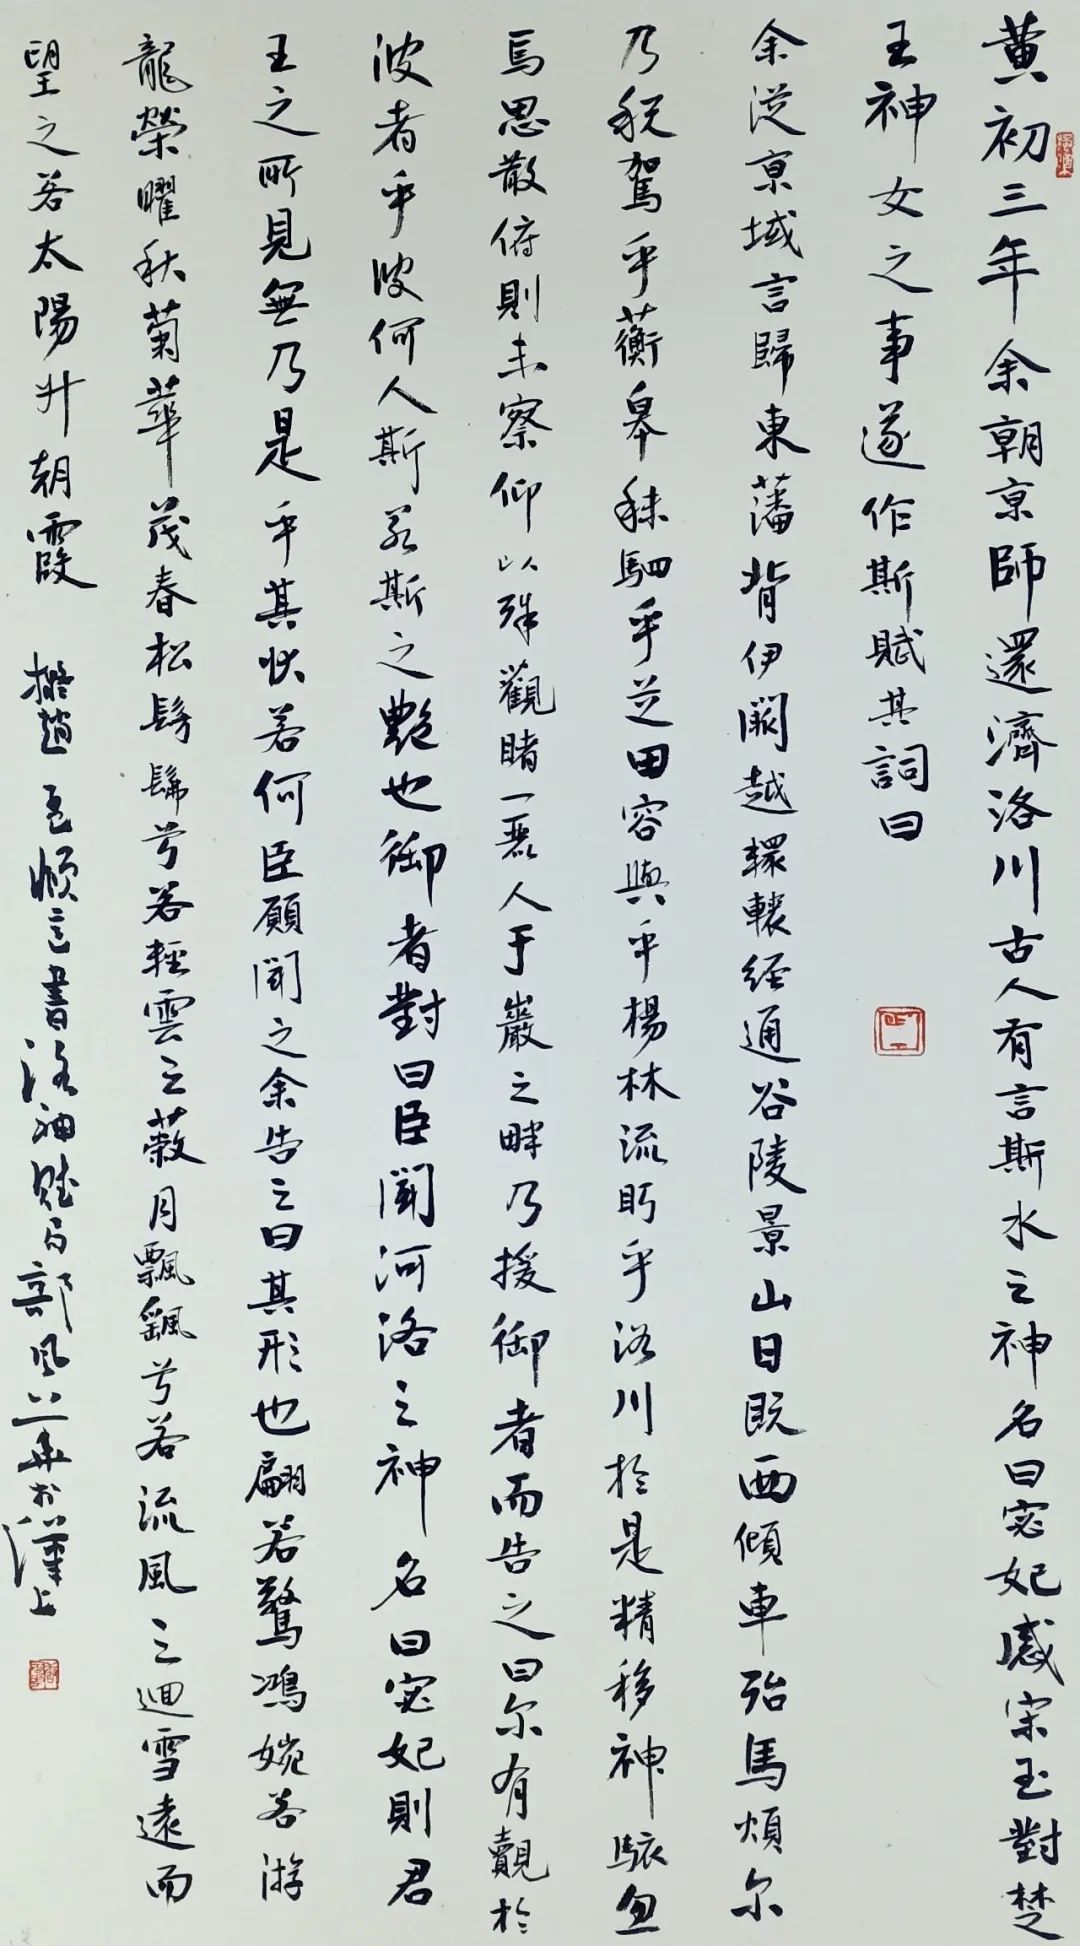 黃初三年余朝京師還濟洛川古人有言斯水之神名曰宓妃感宋玉對楚
王神女之事遂作斯賦其詞曰
余從京域言歸東藩背伊闕越轘轅經通谷陵景山日既西傾車殆馬煩尔
乃稅駕乎蘅皋秣駟乎芝田容與乎楊林流眄乎洛川於是精移神駭忽
焉思散俯則未察仰以殊觀睹一麗人于巖之畔乃援御者而告之曰尔有覿於
彼者乎彼何人斯若斯之艷也御者對曰臣聞河洛之神名曰宓妃則君
王之所見無乃是乎其狀若何臣願聞之余告之曰其形也翩若驚鴻婉若游
龍榮曜秋菊華茂春松髣髴兮若輕雲之蔽月飄颻兮若流風之迴雪遠而
望之若太陽升朝霞
擬趙孟頫書洛神賦局部風於漢上